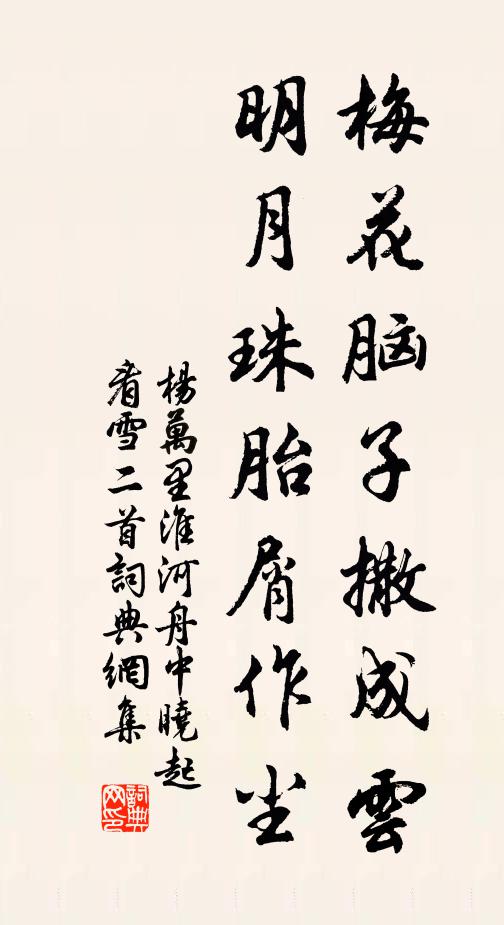 梅花脑子撒成雲
明月珠胎屑作尘
楊萬里淮河舟中曉起
看雪二首詞典網集
詞典
网印